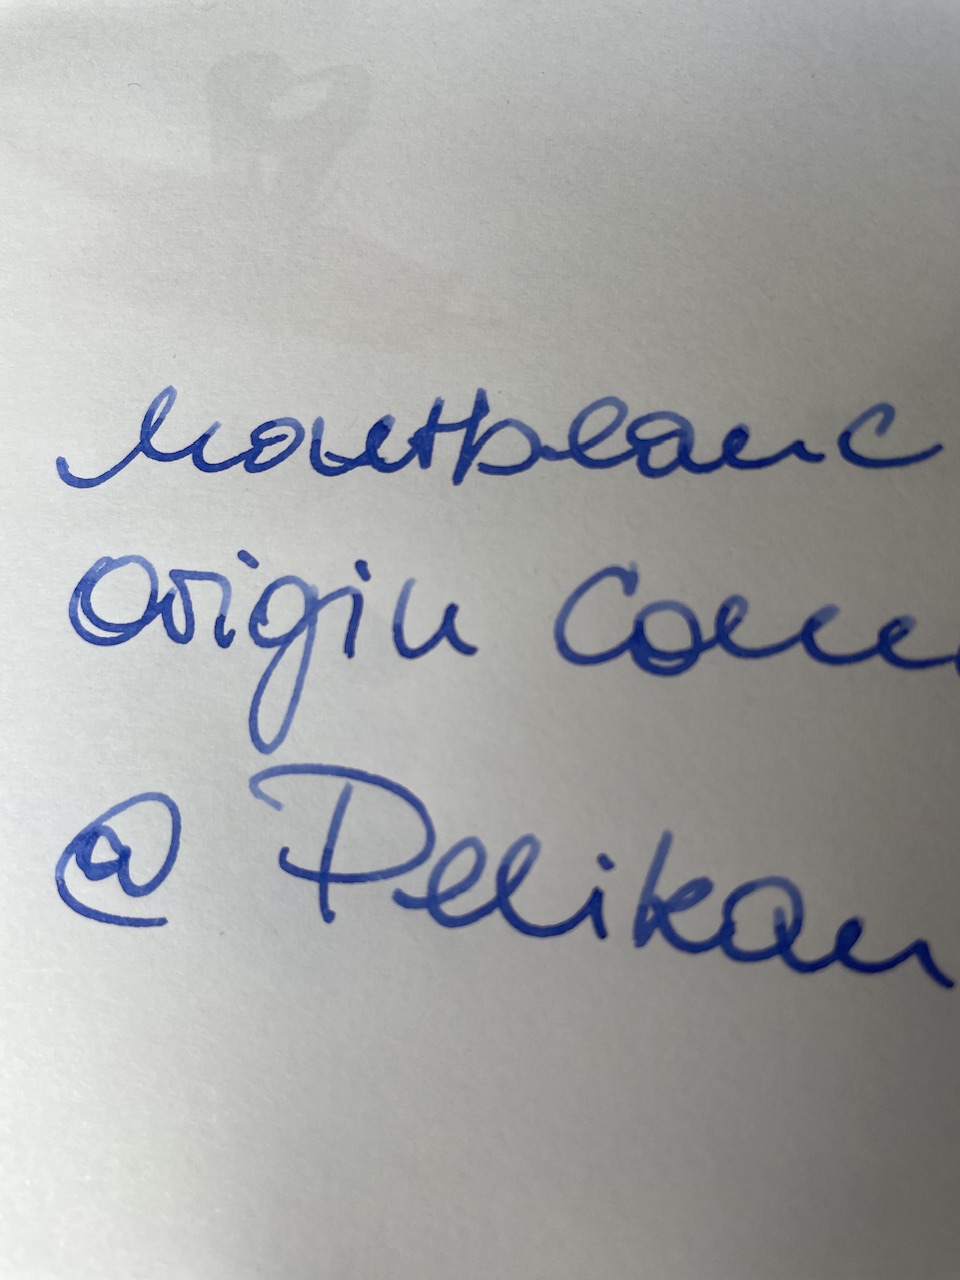 Montblanc
Origin
@ Pelikan